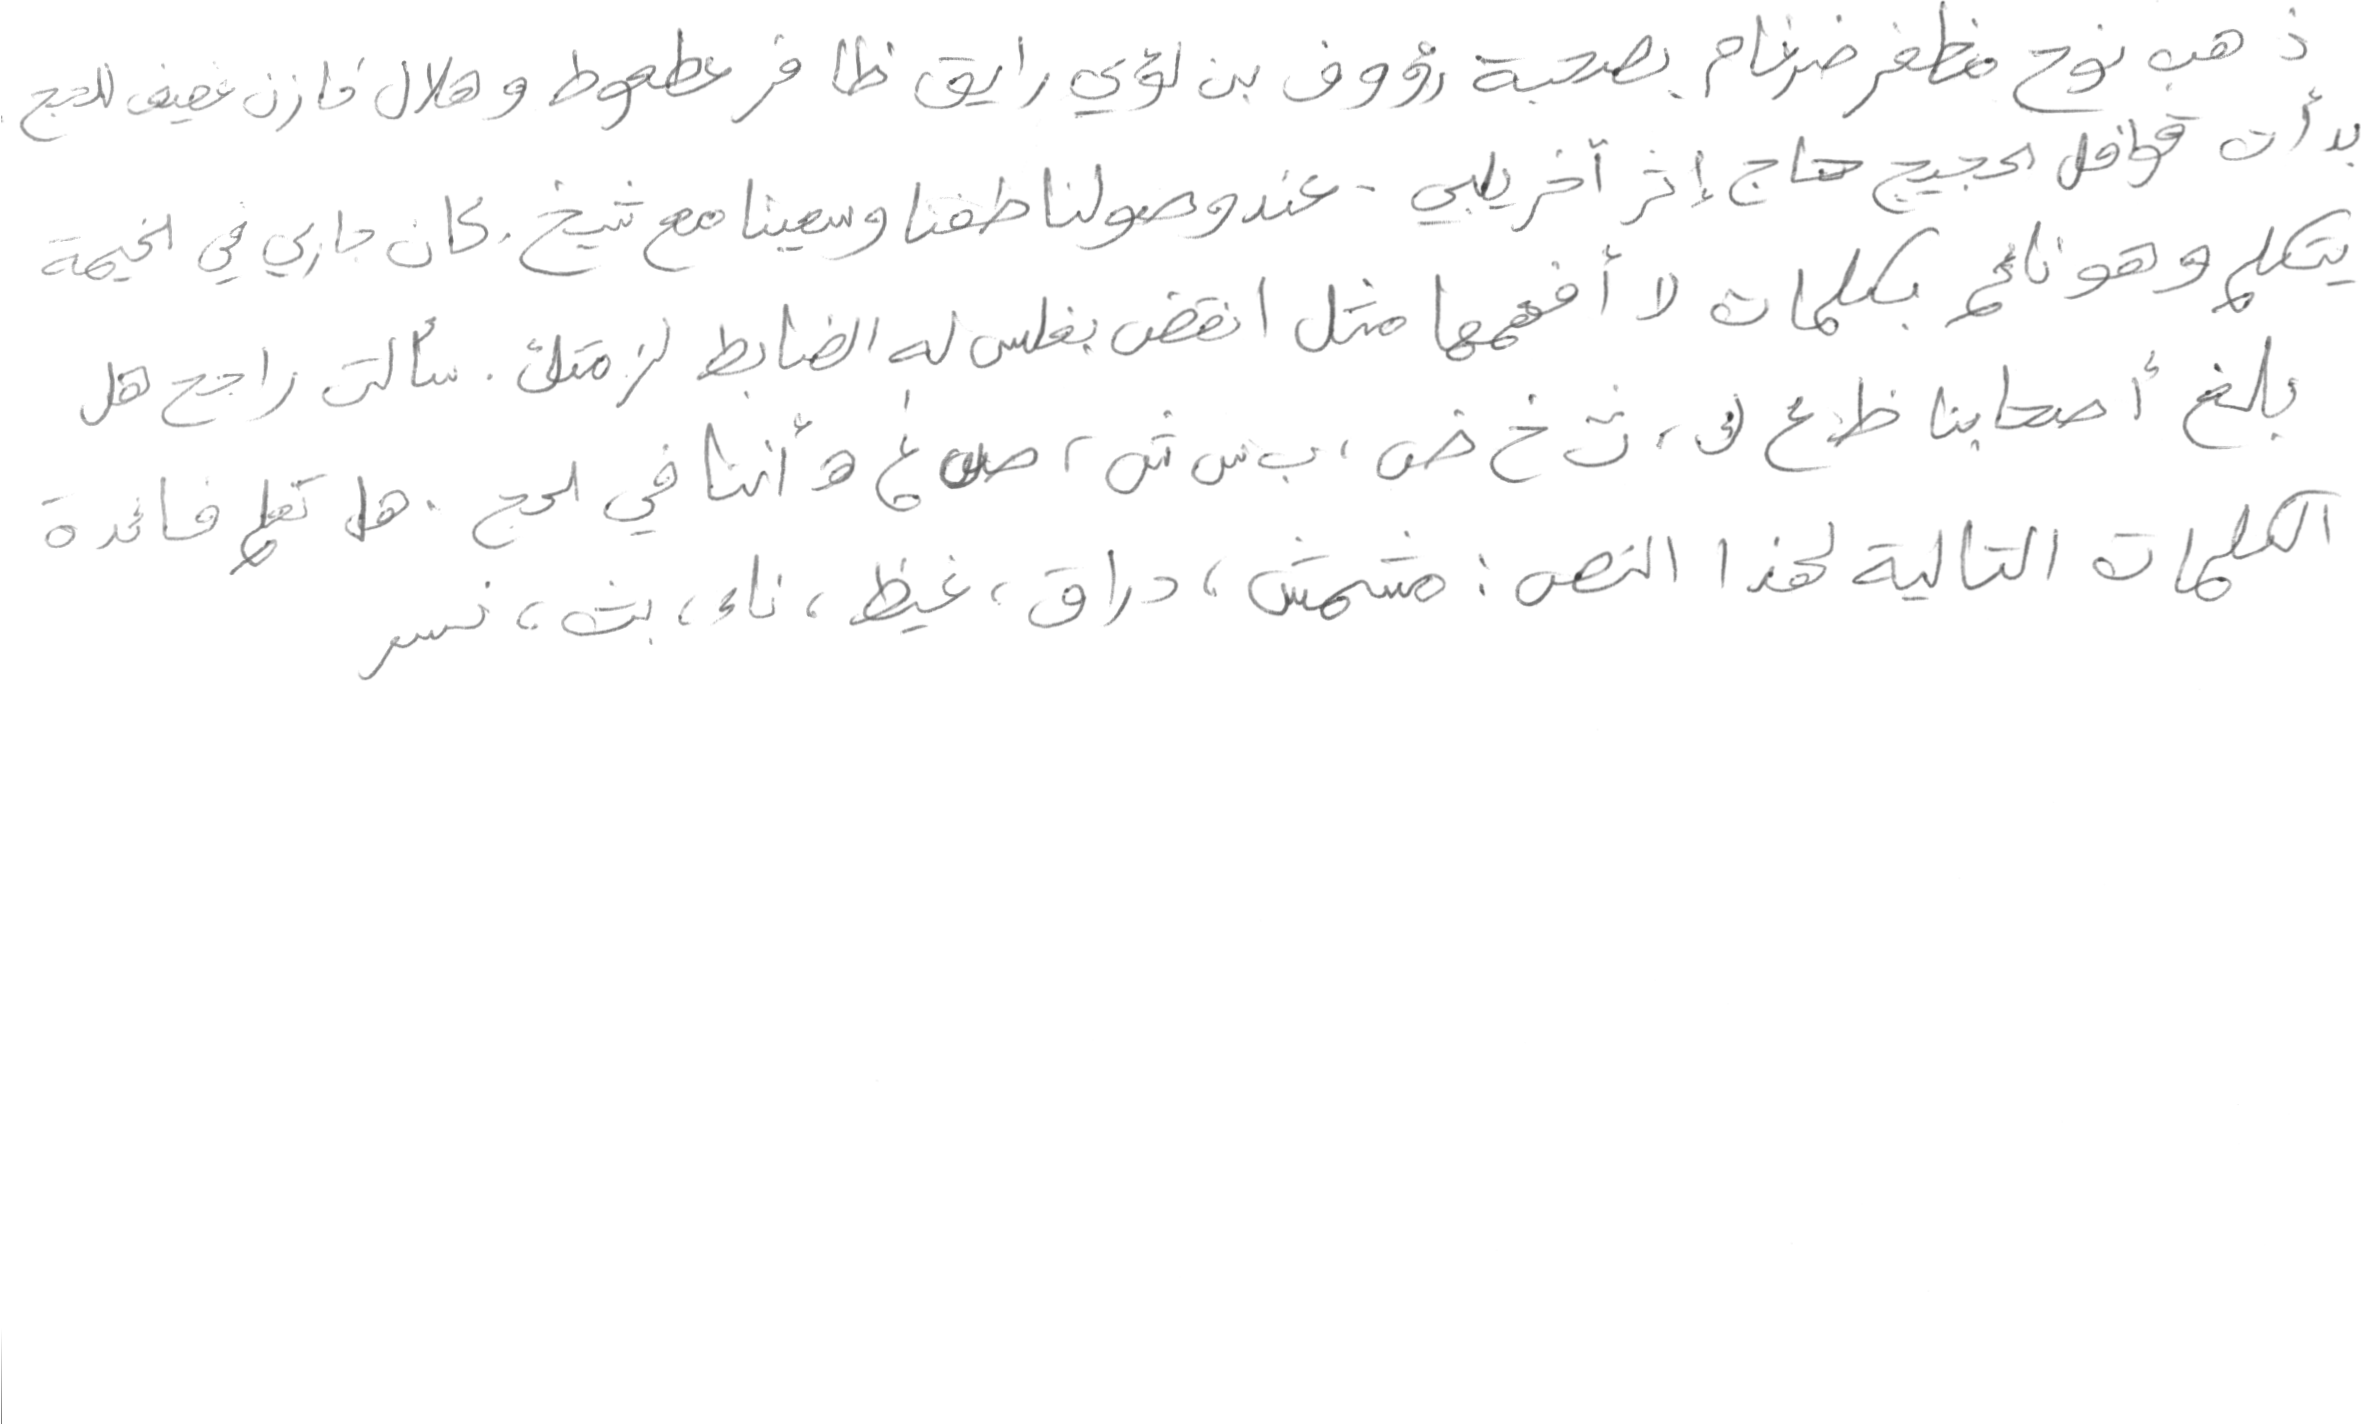 ذهب نوح مظفر ضرغام بصحبة رؤوف بن لؤي رايق ظافر عطعوط وهلال خازن غصيف للحج
بدأت قوافل الحجيج حاج إثر آخر يلبي - عند وصولنا طفنا وسعينا مع شيخ. كان جاري في الخيمة
يتكلم وهو نائم بكلمات لا أفهمها مثل انقض بغلس له الضابط لزمتك. سألت راجح هل
بلغ أصحابنا ظ ع ك، ث خ ض، ب س ش، ص غ ه أننا في الحج. هل تعلم فائدة
الكلمات التالية لهذا النص: مشمش، دراق، غيظ، ناء، بث، نسر